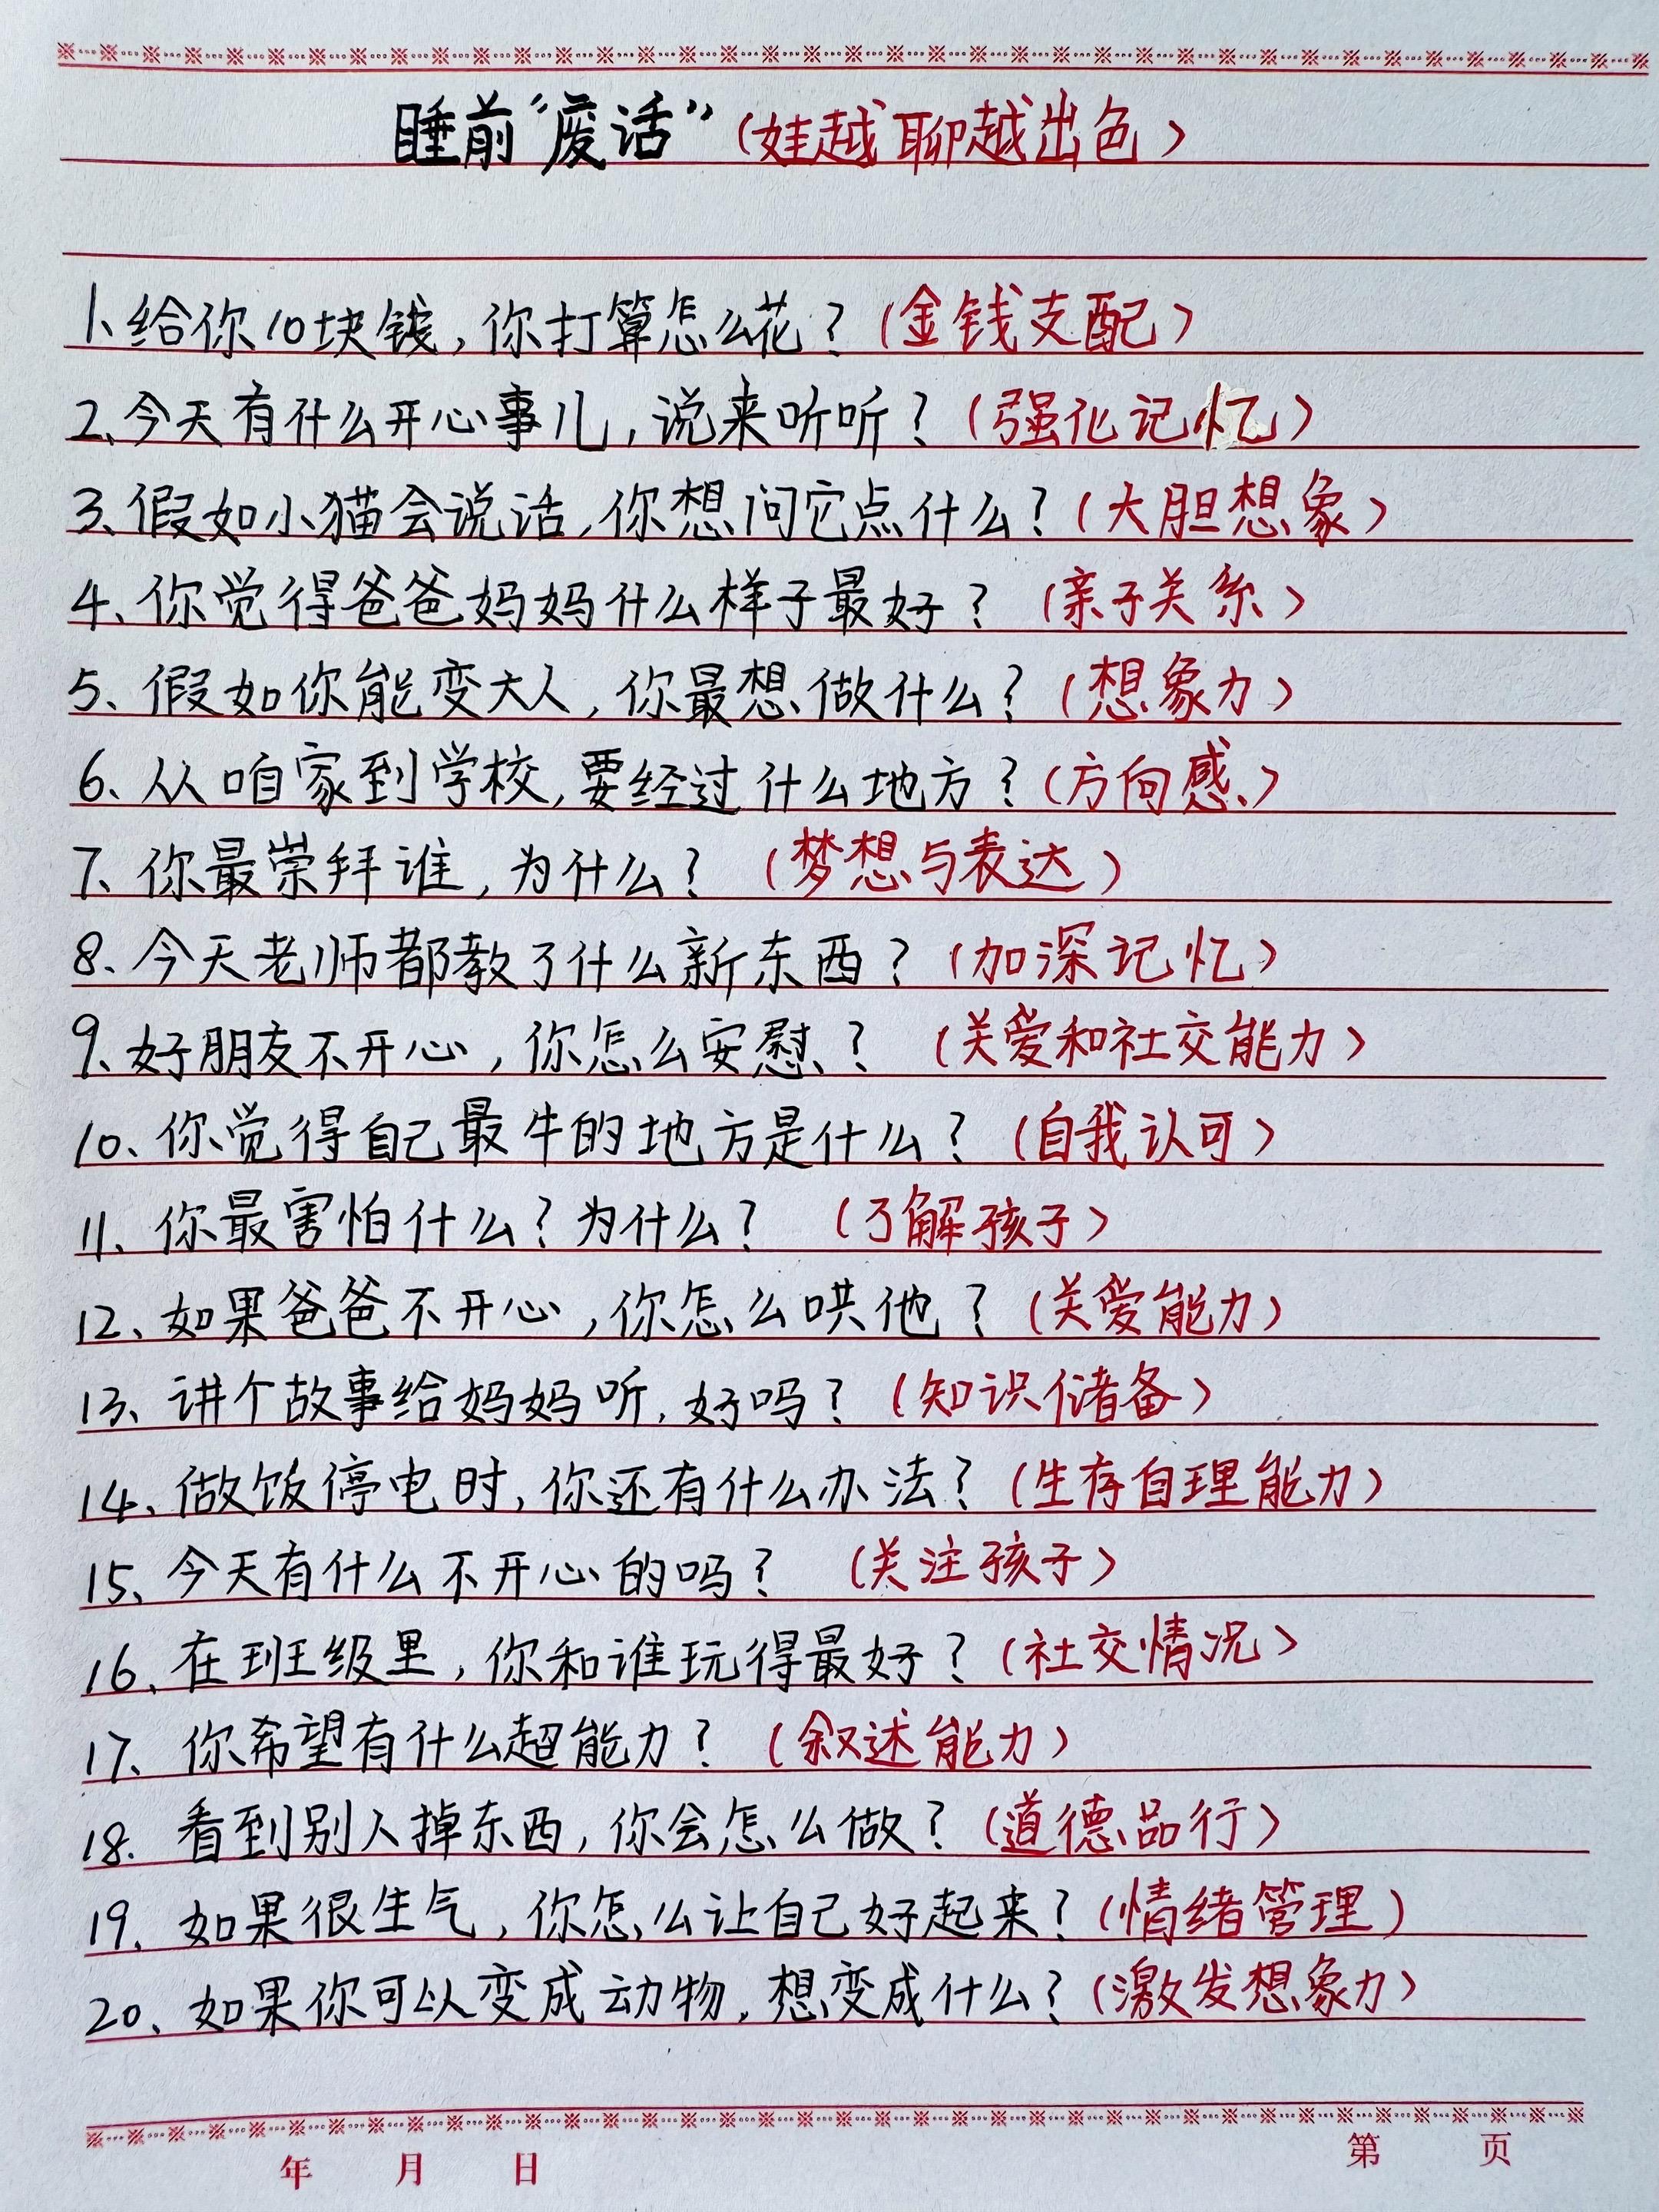 睡前“废话”(娃越聊越出色)
1、给你10块钱,你打算怎么花?(金钱支配)
2、今天有什么开心事儿,说来听听?(强化记忆)
3、假如小猫会说话,你想问它点什么?(大胆想象)
4、你觉得爸爸妈妈什么样子最好?(亲子关系)
5、假如你能变大人,你最想做什么?(想象力)
6、从咱家到学校,要经过什么地方?(方向感)
7、你最崇拜谁,为什么?(梦想与表达)
8、今天老师都教了什么新东西?(加深记忆)
9、好朋友不开心,你怎么安慰?(关爱和社交能力)
10、你觉得自己最牛的地方是什么?(自我认可)
11、你最害怕什么?为什么?(了解孩子)
12、如果爸爸不开心,你怎么哄他?(关爱能力)
13、讲个故事给妈妈听,好吗?(知识储备)
14、做饭停电时,你还有什么办法?(生存自理能力)
15、今天有什么不开心的吗?(关注孩子)
16、在班级里,你和谁玩得最好?(社交情况)
17、你希望有什么超能力?(叙述能力)
18.看到别人掉东西,你会怎么做?(道德品行)
19.如果很生气,你怎么让自己好起来?(情绪管理)
20、如果你可以变成动物,想变成什么?(激发想象力)
年 月 日 第 页